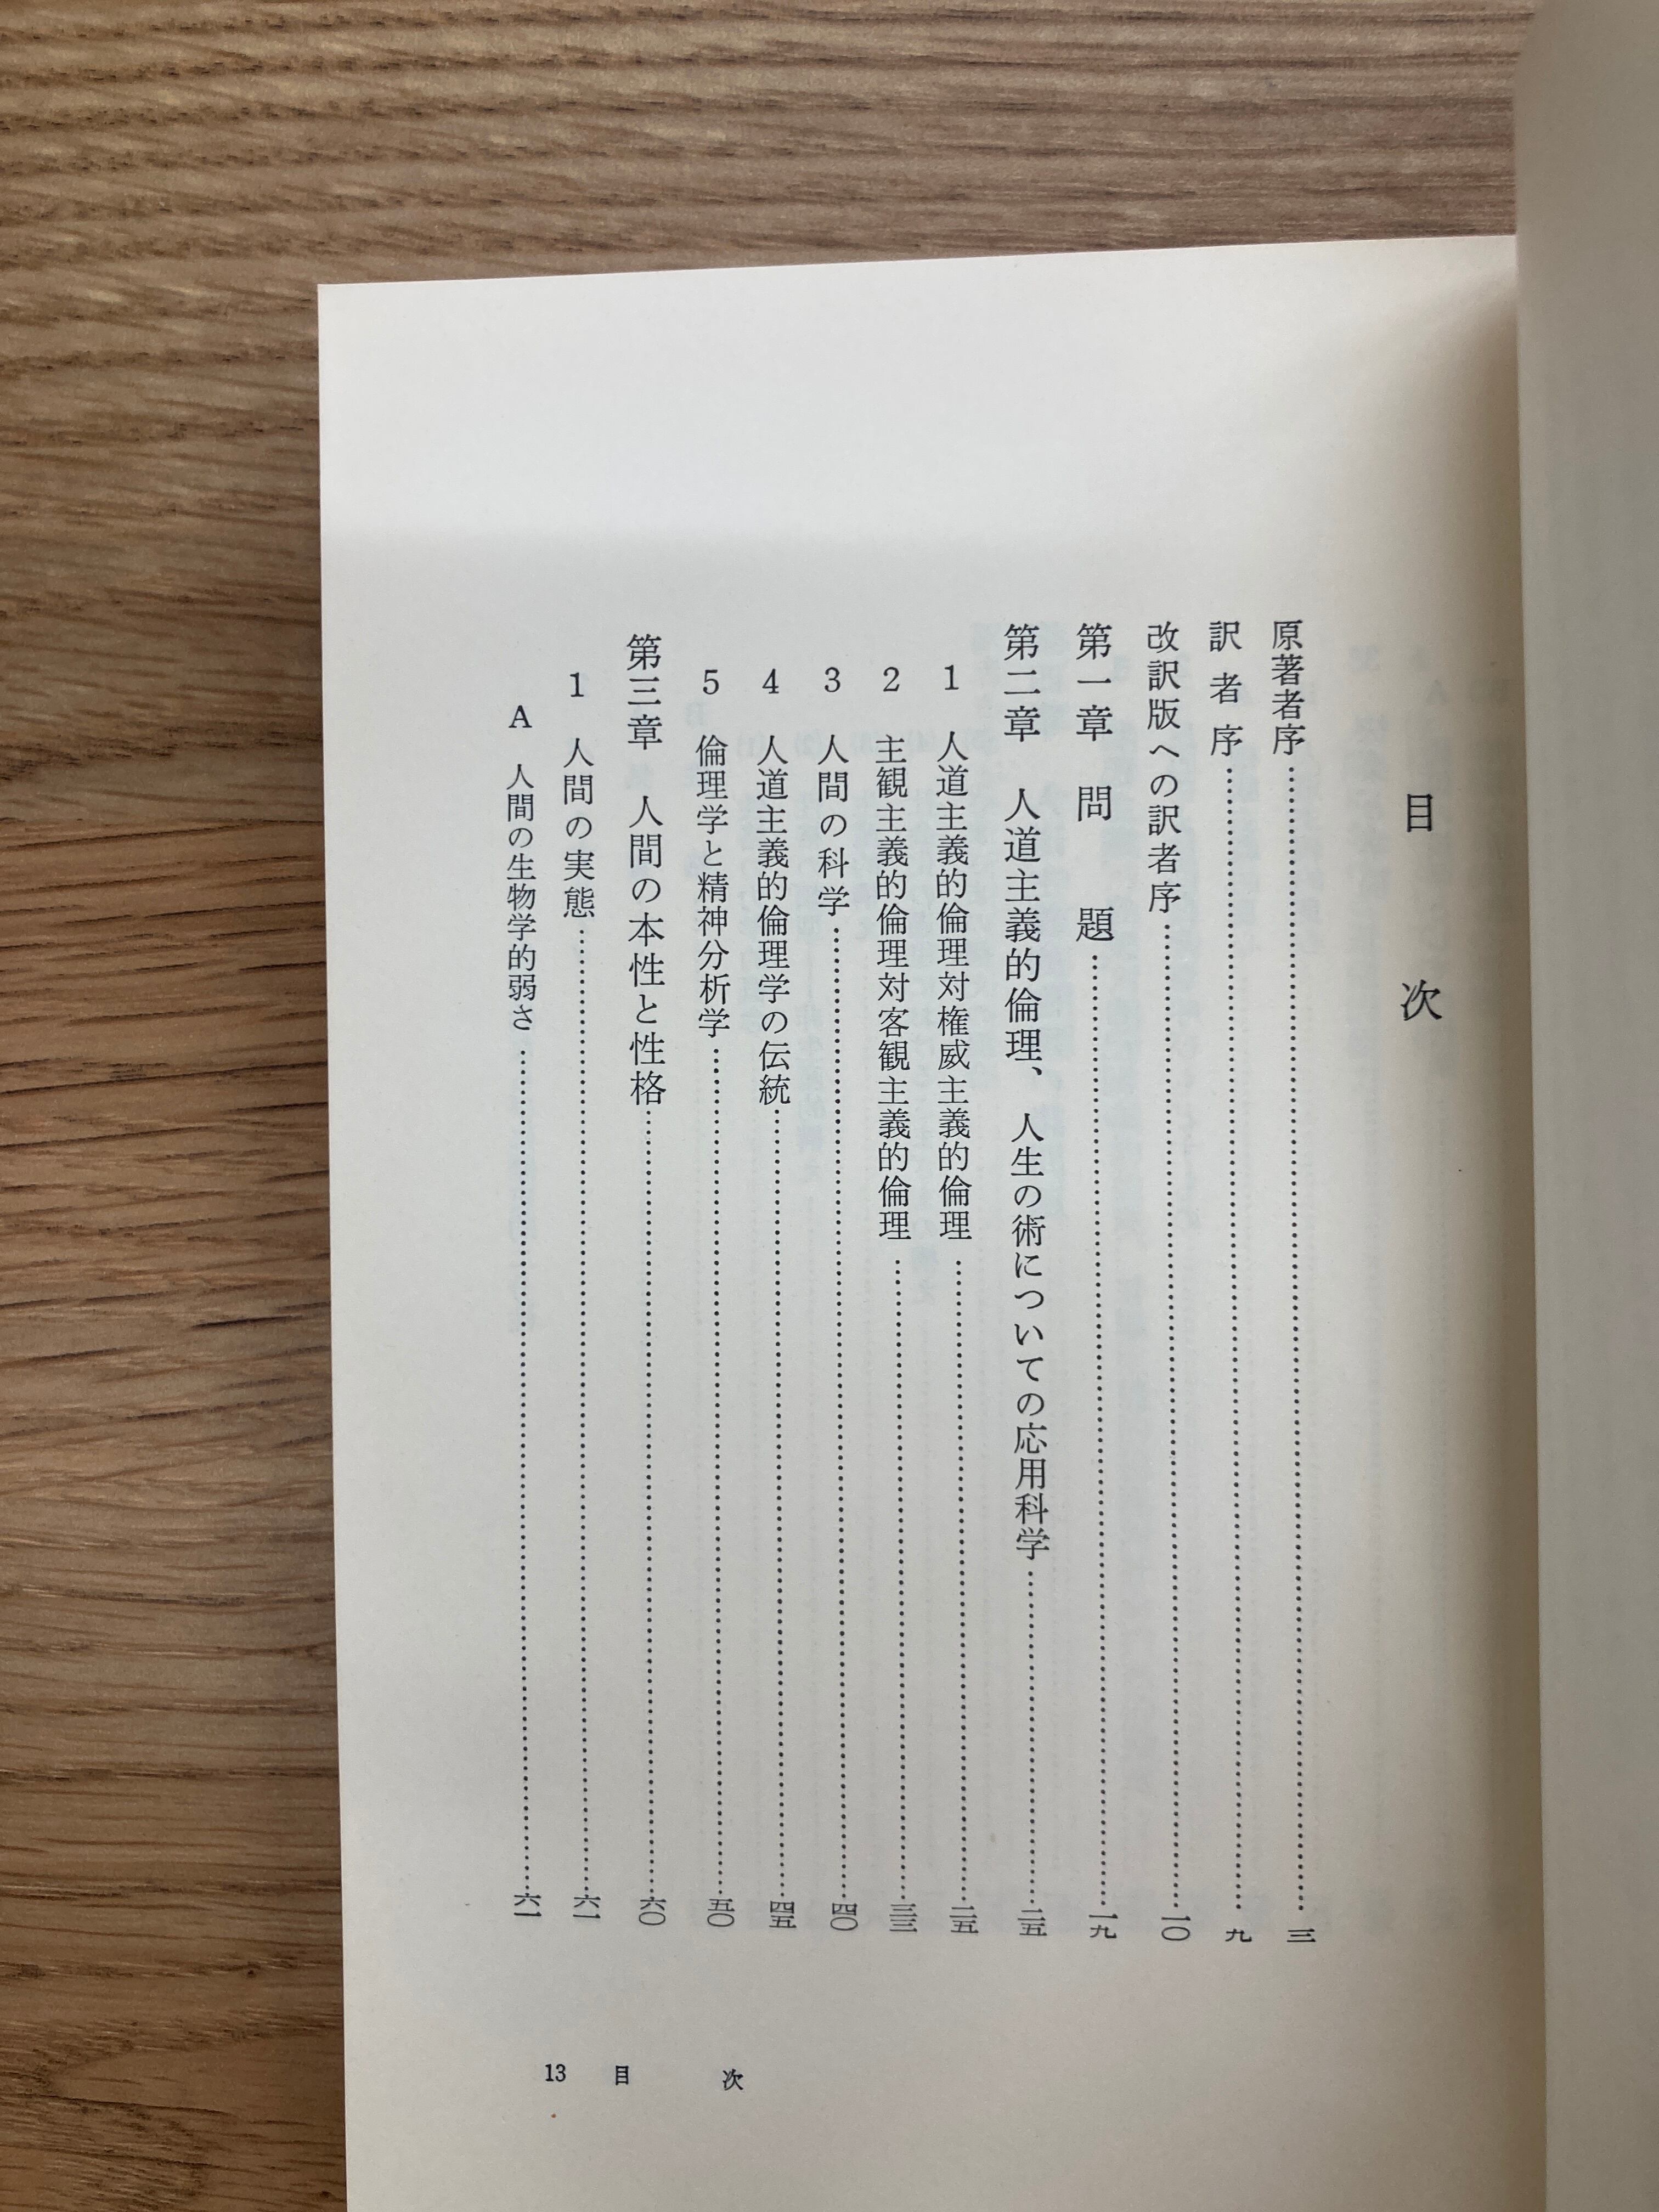 目次
原著者序……………………三
訳者序……………………九
改訳版への訳者序……………………一〇
第一章 問題……………………一九
第二章 人道主義的倫理、人生の術についての応用科学……………………二五
1 人道主義的倫理対権威主義的倫理……………………二五
2 主観主義的倫理対客観主義的倫理……………………三三
3 人間の科学……………………四〇
4 人道主義的倫理学の伝統……………………四五
5 倫理学と精神分析学……………………五〇
第三章 人間の本性と性格……………………六〇
1 人間の実態……………………六一
A 人間の生物学的弱さ……………………六一
13 目次